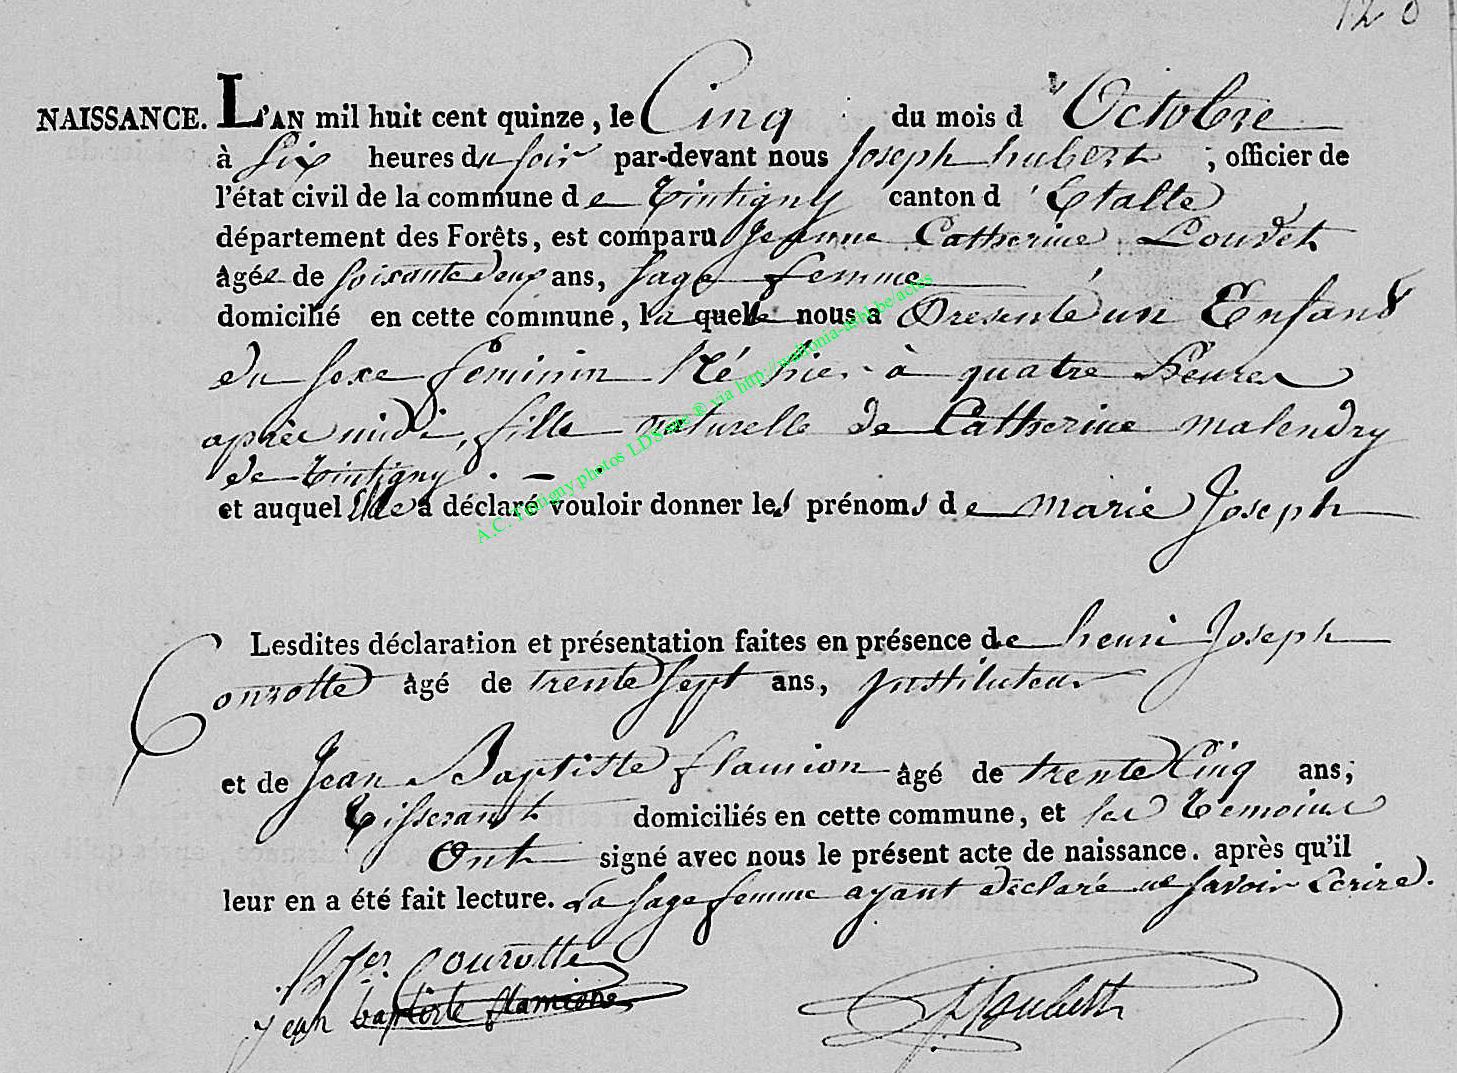 120
NAISSANCE. L'AN mil huit cent quinze, le Cinq du mois d' Octobre
à Six heures du soir par-devant nous Joseph hubert ; officier de
l'état civil de la commune de Tintigny canton d' Etalle
département des Forêts, est comparu Jeanne Catherine Loudet
âgée de soisante deux ans, sage femme
domicilié en cette commune, la quelle nous a Presenté un Enfant
du sexe feminin Né hier à quatre heures
après midi, fille naturelle de Catherine malendry
de Tintigny . — .
et auquel Elle a déclaré vouloir donner les prénoms de marie Joseph
Lesdites déclaration et présentation faites en présence de henri Joseph
Courotte âgé de trente sept ans, Instituteur
et de Jean Baptiste flamion âgé de trente Cinq ans,
Tisserant domiciliés en cette commune, et les Temoins
Ont signé avec nous le présent acte de naissance. après qu'il
leur en a été fait lecture. La sage femme ayant déclaré ne savoir Ecrire.
Courotte
jean baptiste flamion
A.C. Tintigny photos LDS site ® via http://mallonia-nobl.be/actes